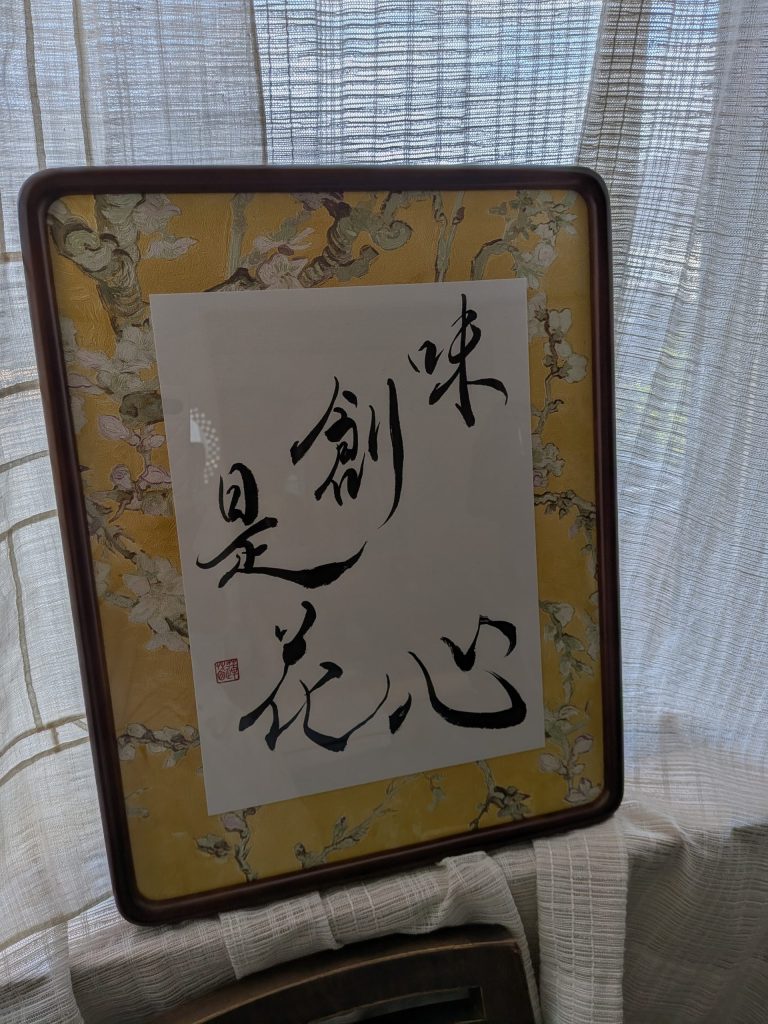 味創是
心花